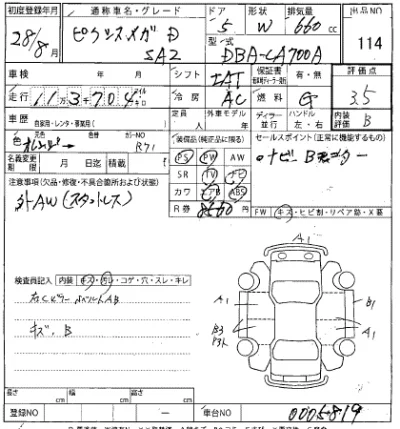 初度登録年月 通称車名・グレード ドア 形状 排気量 出品NO
28/8月 ピクシスメガ D SA2 5 W 660 cc 114
型式 DBA-LA700A
車検 年 月 シフト IAT 保証書 有・無 評価点
走行 11万3千704 冷房 AC 燃料 G 3.5
車歴 自家用・レンタ・事業用( ) 定員 人 外車モデル 年 ディーラー 並行 ハンドル 左・右 内装評価 B
色 元色 オレンジ 色替 カラーNO R71 装備品(純正品に限る) セールスポイント(正常に機能するもの)
PS PW AW ナビ Bモニター
名義変更期限 月 日迄 積載 SR TV ナビ
注意事項(欠品・修復・不具合箇所および状態) カワ エアB ABS
外AW(スタットレス) R券 円
FW キズ・ヒビ割・リペア跡・X要
検査員記入 内装 キズ・汚レ・コゲ・穴・スレ・キレ
A1
右Cピラー A1 B1
キズ、B B3 A1
A1
長さ cm 幅 cm 高さ cm
登録NO ー 車台NO 0005819